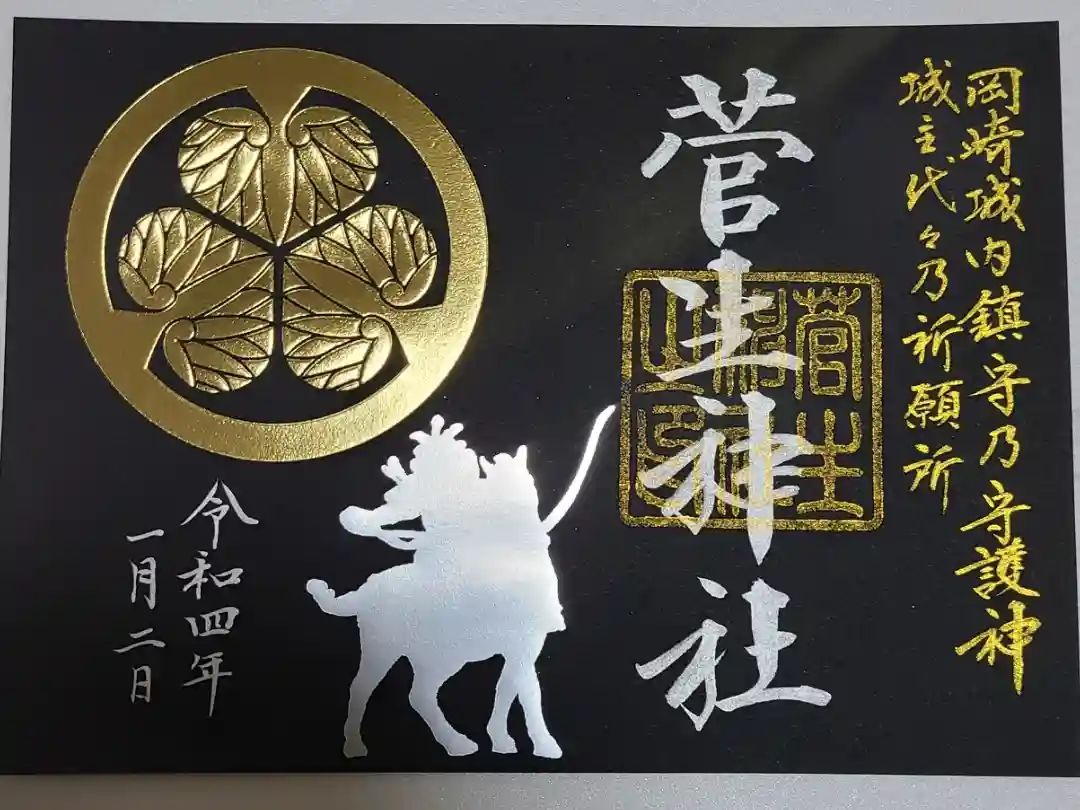 岡崎城内鎮守乃守護神
城主代々乃祈願所
菅生神社
菅生
令和四年
一月二日